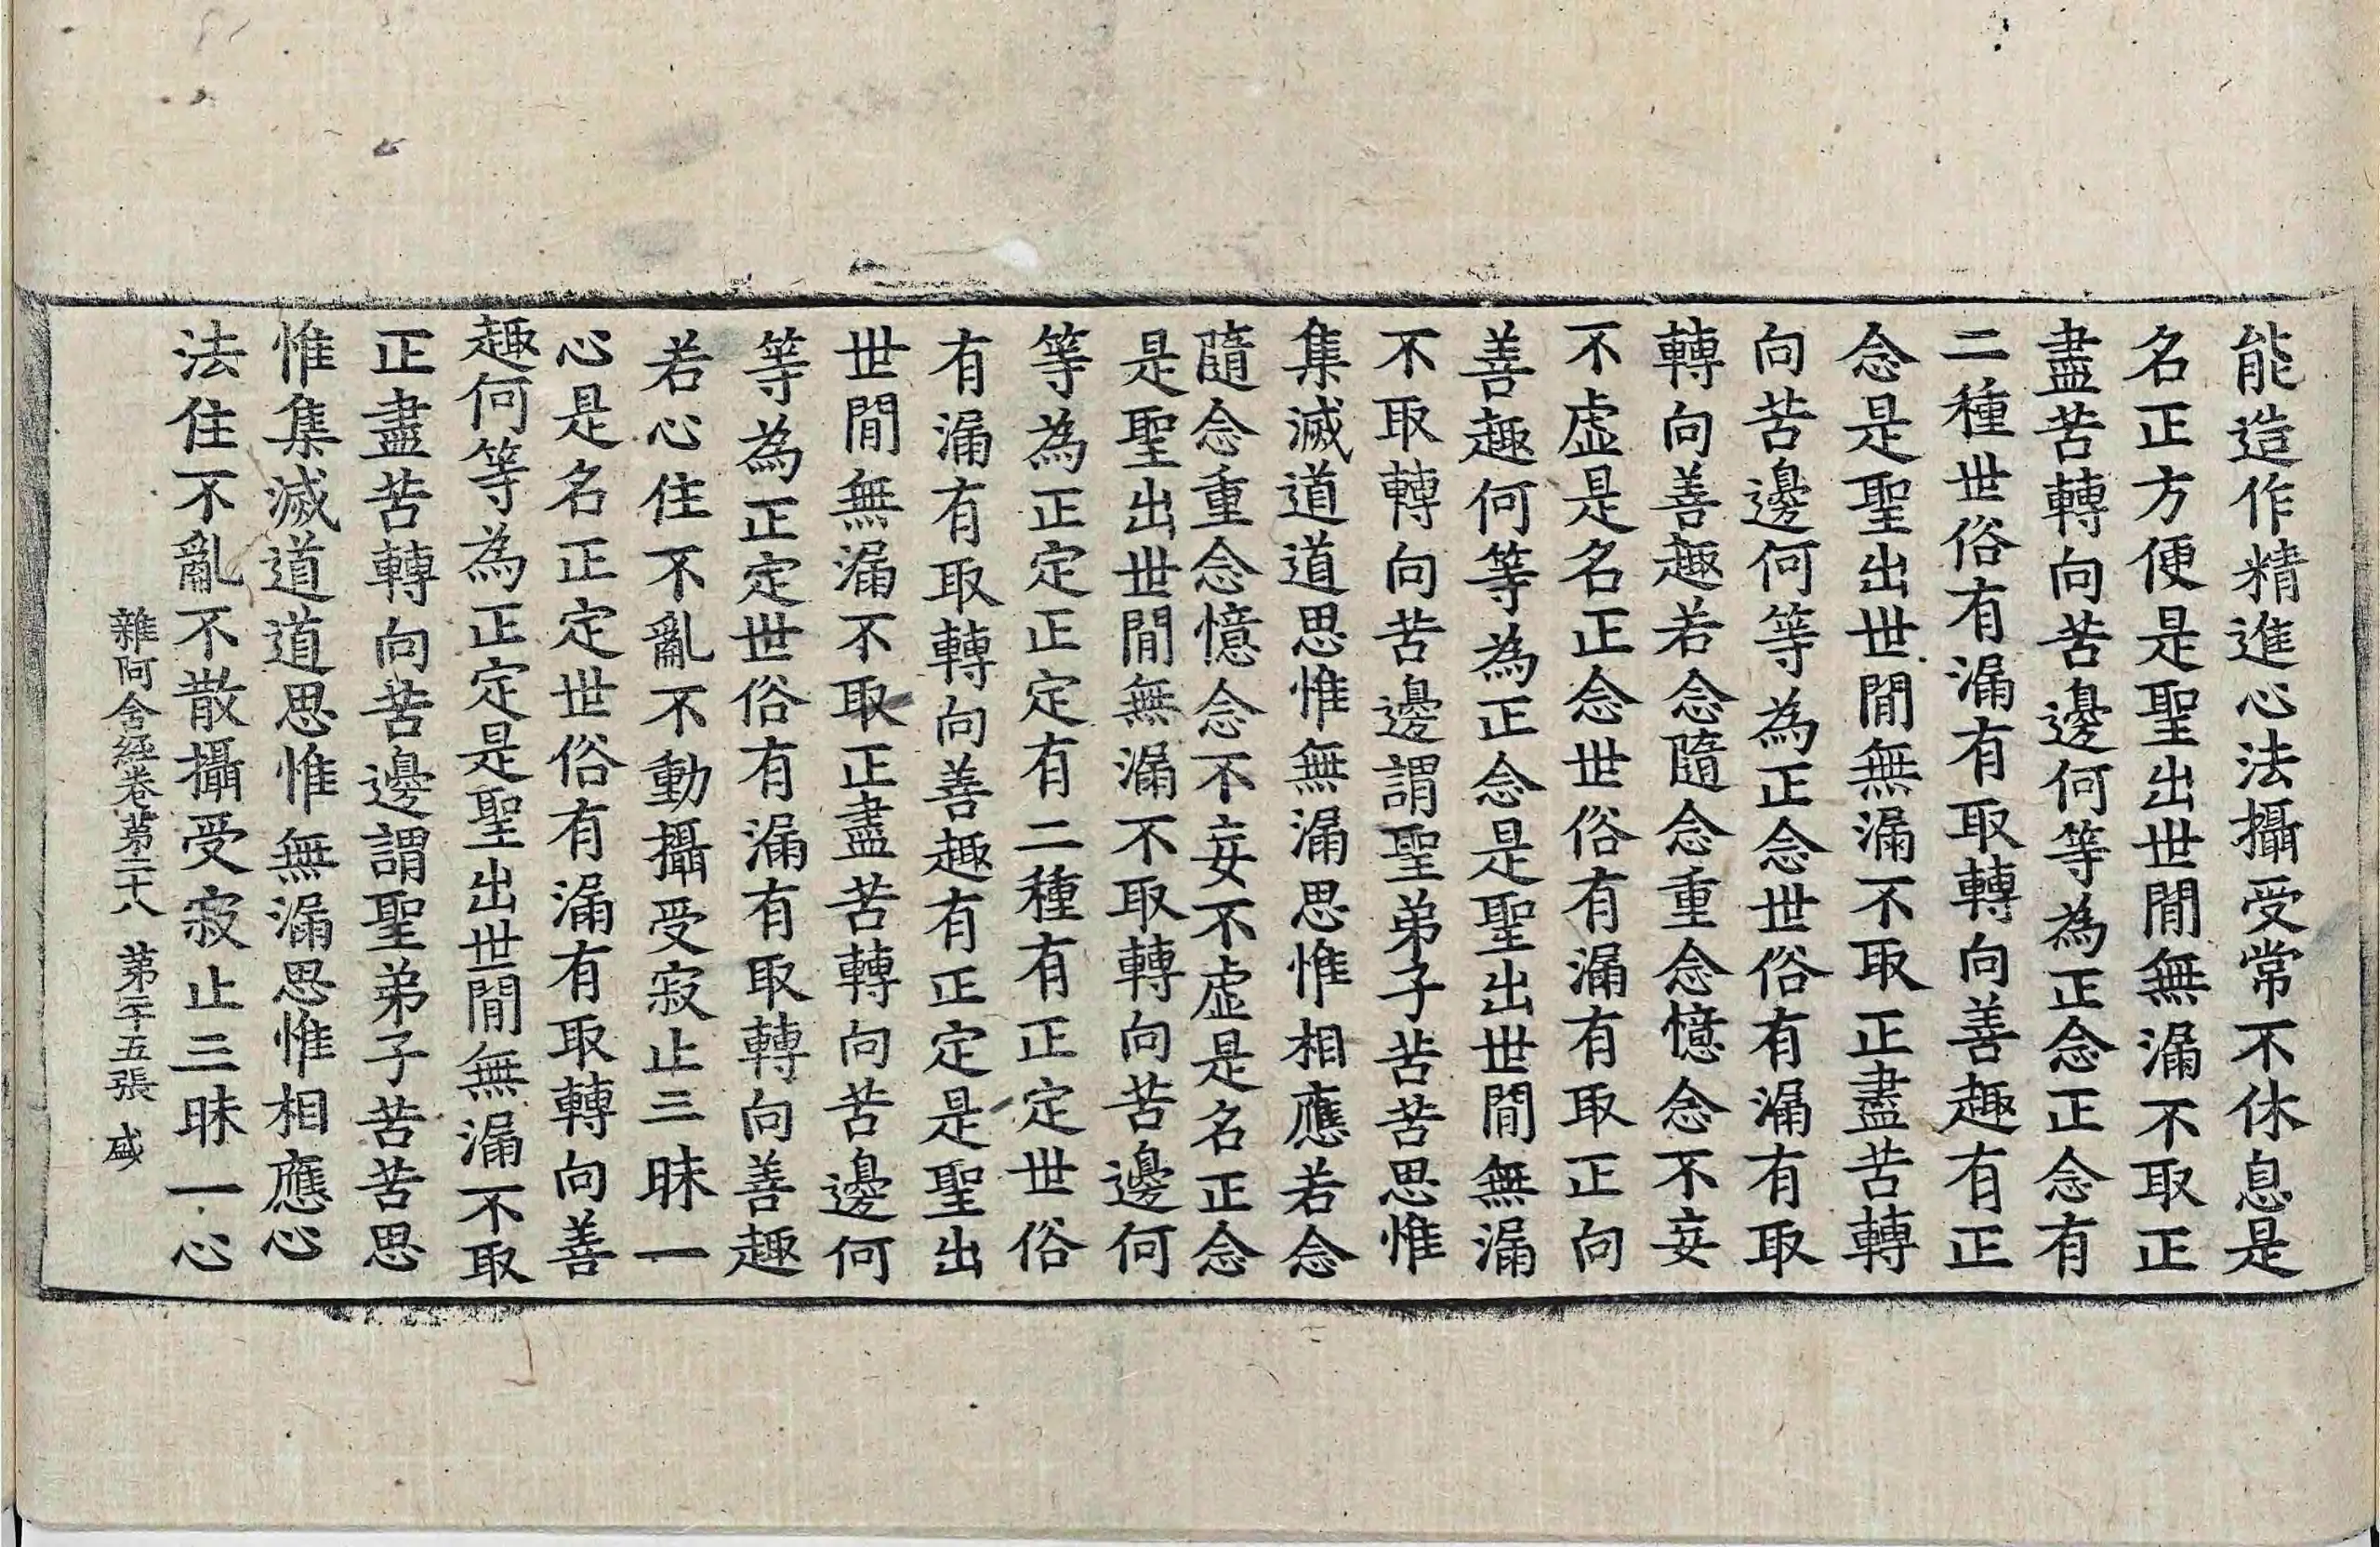 能造作精進心法攝受常不休息是
名正方便是聖出世間無漏不取正
盡苦轉向苦邊何等為正念正念有
二種世俗有漏有取轉向善趣有正
念是聖出世間無漏不取正盡苦轉
向苦邊何等為正念世俗有漏有取
轉向善趣若念隨念重念憶念不妄
不虛是名正念世俗有漏有取正向
善趣何等為正念是聖出世間無漏
不取轉向苦邊謂聖弟子苦苦思惟
集滅道道思惟無漏思惟相應若念
隨念重念憶念不妄不虛是名正念
是聖出世間無漏不取轉向苦邊何
等為正定正定有二種有正定世俗
有漏有取轉向善趣有正定是聖出
世間無漏不取正盡苦轉向苦邊何
等為正定世俗有漏有取轉向善趣
若心住不亂不動攝受寂止三昧一
心是名正定世俗有漏有取轉向善
趣何等為正定是聖出世間無漏不取
正盡苦轉向苦邊謂聖弟子苦苦思
惟集滅道道思惟無漏思惟相應心
法住不亂不散攝受寂止三昧一心
雜阿含經卷第二十八 第二十五張 盛